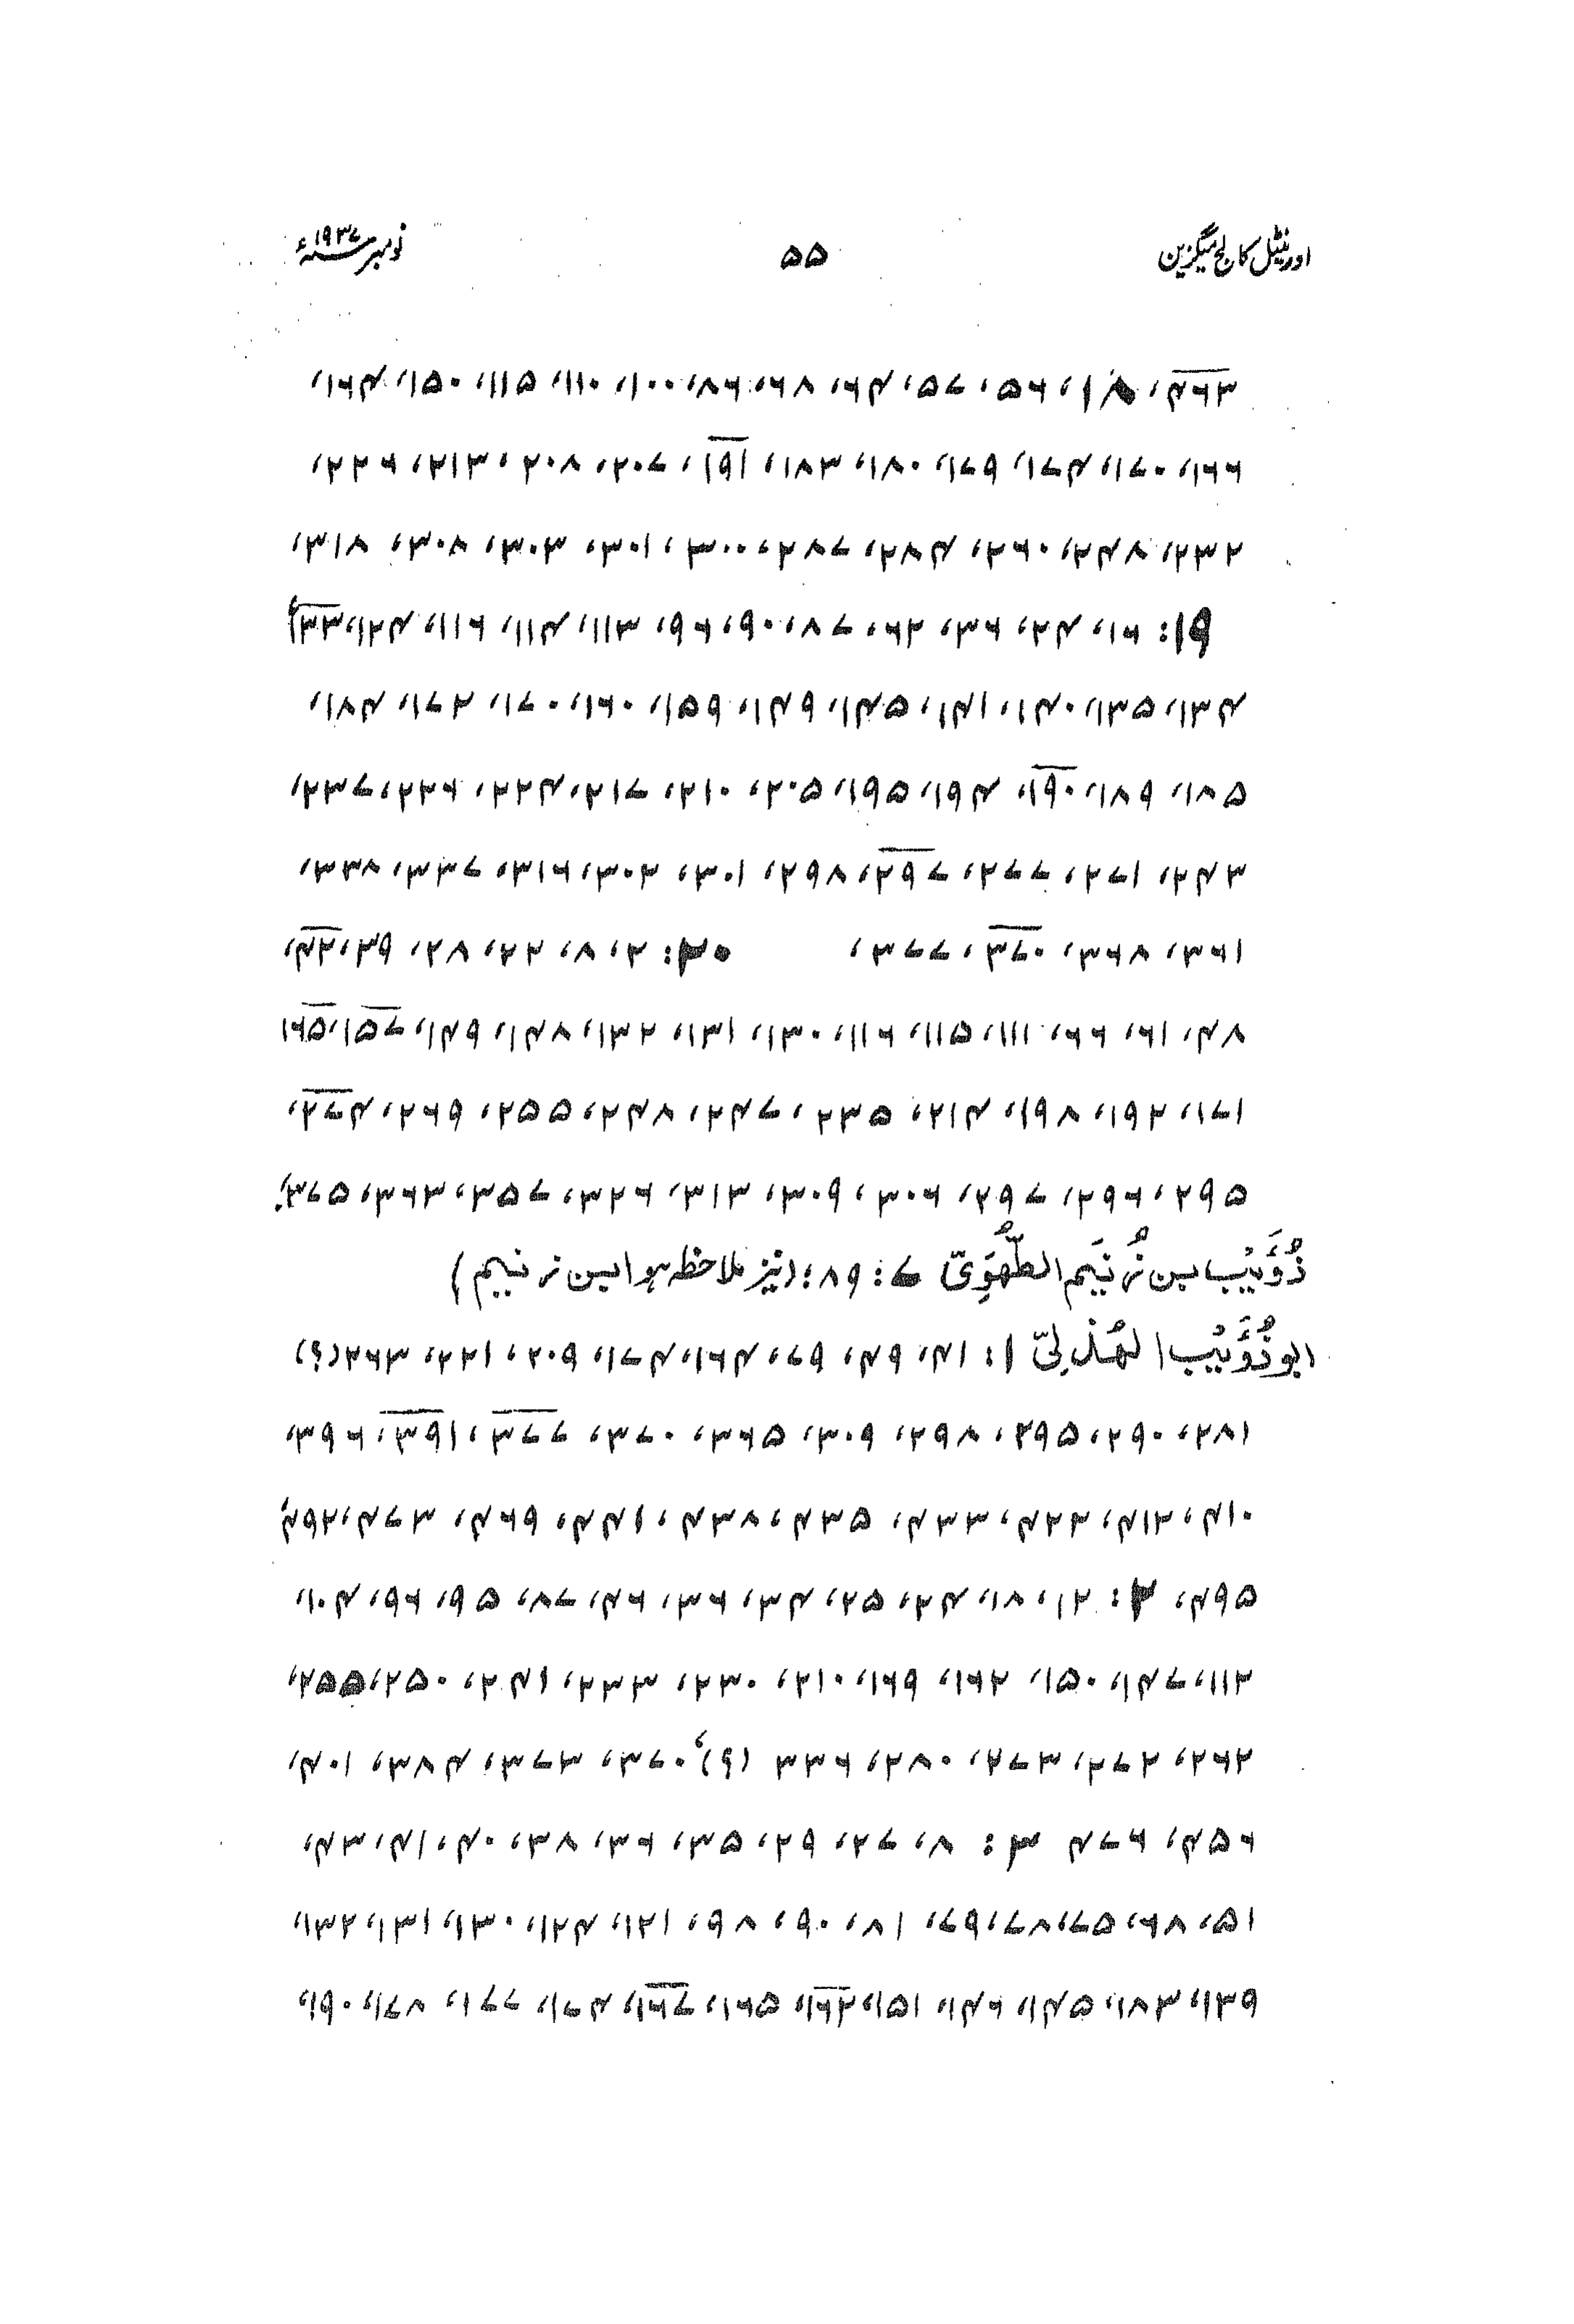 اورینٹل کالج میگزین ۵۵ نومبر ۱۹۳۷ء
۴۶۳، ۱۸، ۵۶، ۵۷، ۶۴، ۶۸، ۸۶، ۱۰۰، ۱۱۰، ۱۱۵، ۱۵۰، ۱۶۴،
۱۶۶، ۱۷۰، ۱۷۴، ۱۷۹، ۱۸۰، ۱۸۳، ۱۹۱، ۲۰۷، ۲۰۸، ۲۱۳، ۲۲۶،
۲۳۲، ۲۴۸، ۲۶۰، ۲۸۴، ۲۸۷، ۳۰۰، ۳۰۱، ۳۰۳، ۳۰۸، ۳۱۸،
۱۹: ۱۶، ۲۴، ۳۶، ۶۲، ۸۷، ۹۰، ۹۶، ۱۱۳، ۱۱۴، ۱۱۶، ۱۲۴، ۱۳۳،
۱۳۴، ۱۳۵، ۱۴۰، ۱۴۱، ۱۴۵، ۱۴۹، ۱۵۹، ۱۶۰، ۱۷۰، ۱۷۲، ۱۸۴،
۱۸۵، ۱۸۹، ۱۹۰، ۱۹۴، ۱۹۵، ۲۰۵، ۲۱۰، ۲۱۷، ۲۲۴، ۲۲۶، ۲۳۷،
۲۴۳، ۲۷۱، ۲۷۷، ۲۹۷، ۲۹۸، ۳۰۱، ۳۰۲، ۳۱۶، ۳۳۷، ۳۳۸،
۳۶۱، ۳۶۸، ۳۷۰، ۳۷۷، ۲۰: ۲، ۸، ۲۲، ۲۸، ۳۹، ۴۲،
۴۸، ۶۱، ۶۶، ۱۱۱، ۱۱۵، ۱۱۶، ۱۳۰، ۱۳۱، ۱۳۲، ۱۴۸، ۱۴۹، ۱۵۷، ۱۶۵
۱۷۱، ۱۹۲، ۱۹۸، ۲۱۴، ۲۳۵، ۲۴۷، ۲۴۸، ۲۵۵، ۲۶۹، ۲۷۴،
۲۹۵، ۲۹۶، ۲۹۷، ۳۰۶، ۳۰۹، ۳۱۳، ۳۲۶، ۳۵۷، ۳۶۳، ۳۷۵؛
ذُؤَیْب بن زُنَیم الطُّهَوِیّ ۷: ۸۹؛ (نیز ملاحظہ ہو ابن زنیم)
ابو ذُؤَیْب الهُذَلِیّ ۱: ۴۱، ۴۹، ۷۹، ۱۶۴، ۱۷۴، ۲۰۹، ۲۲۱، ۲۶۳(؟)
۲۸۱، ۲۹۰، ۲۹۵، ۲۹۸، ۳۰۹، ۳۶۵، ۳۷۰، ۳۷۷، ۳۹۱، ۳۹۶،
۴۱۰، ۴۱۲، ۴۲۲، ۴۳۳، ۴۳۵، ۴۳۸، ۴۴۱، ۴۶۹، ۴۷۳، ۴۹۲،
۴۹۵، ۲: ۱۲، ۱۸، ۲۴، ۲۵، ۳۴، ۳۶، ۴۶، ۸۷، ۹۵، ۹۶، ۱۰۴،
۱۱۲، ۱۴۷، ۱۵۰، ۱۶۲، ۱۶۹، ۲۱۰، ۲۳۰، ۲۳۳، ۲۴۱، ۲۵۰، ۲۵۵،
۲۶۲، ۲۷۲، ۲۷۳، ۲۸۰، ۳۳۶ (؟)، ۳۷۰، ۳۷۳، ۳۸۴، ۴۰۱،
۴۵۶، ۴۷۶ ۳: ۸، ۲۷، ۲۹، ۳۵، ۳۶، ۳۸، ۴۰، ۴۱، ۴۳،
۵۱، ۶۸، ۷۵، ۷۸، ۷۹، ۸۱، ۹۰، ۹۸، ۱۲۱، ۱۲۴، ۱۳۰، ۱۳۱، ۱۳۲،
۱۳۹، ۱۸۳، ۱۴۵، ۱۴۶، ۱۵۱، ۱۶۲، ۱۶۵، ۱۶۷، ۱۷۴، ۱۷۷، ۱۷۸، ۱۹۰،